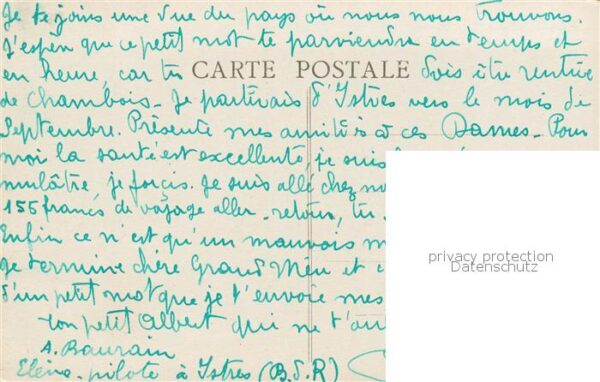 Je te joins une vue du pays où nous nous trouvons.
J'espère que ce petit mot te parviendra en temps et
en heure, car tu dois être rentrée
CARTE POSTALE
de Chambois - Je partirais d'Istres vers le mois de
Septembre. Présente mes amitiés à ces Dames - Pour
moi la santé est excellente, je suis
mulâtre, je forcis. Je suis allé chez
155 francs de voyage aller - retour, tu
Enfin ce n'est qu'un mauvais
Je termine chère Grand Mère et
d'un petit mot que je t'envoie mes
ton petit Albert qui ne t'
A. Baurain
Elève - pilote à Istres (B.D.R)
privacy protection
Datenschutz